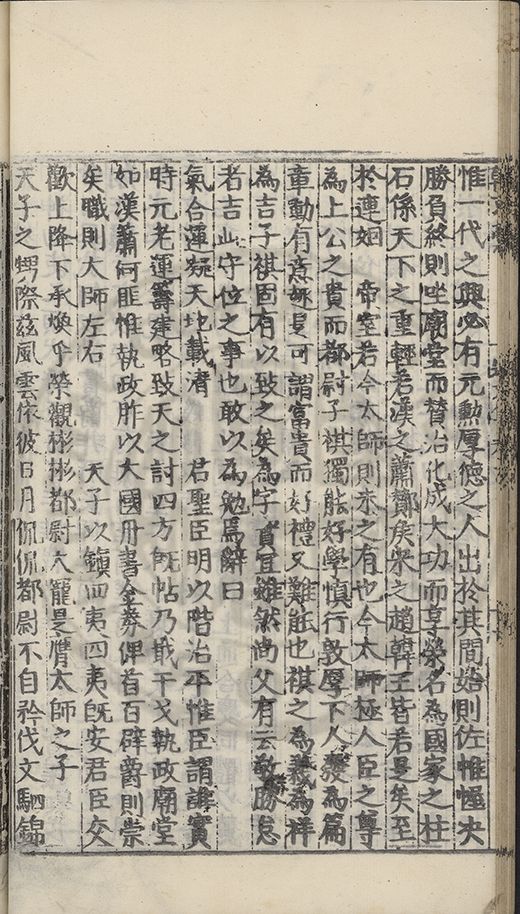 惟一代之興必有元勲厚德之人出於其間始則佐惟幄决
勝負終則坐廟堂而賛治化成大功而享榮名為國家之柱
石係天下之重輕若漢之蕭酇矦宋之趙韓王皆若是矣至
於連姻 帝室若今太師則未之有也今太師極人臣之尊
為上公之貴而都尉子祺獨能好學慎行敦厚下人發為篇
章動有意趣是可謂富貴而好禮又難能也祺之為義為祥
為吉子祺固有以致之矣為字實宜雖然尚父有云敬勝怠
者吉此守位之事也敢以為勉焉辭曰
氣合運凝天地載清 君聖臣明以階治平惟臣謂誰實
時元老運籌建略致天之討四方旣帖乃戢干戈執政廟堂
如漢蕭何匪惟執政胙以大國冊書金券俾首百辟爵則崇
矣職則大師左右 天子以鎮四夷四夷旣安君臣交
歡上降下承煥乎榮觀彬彬都尉大寵是膺太師之子
天子之甥際茲風雲依彼日月侃侃都尉不自矜伐文駟錦